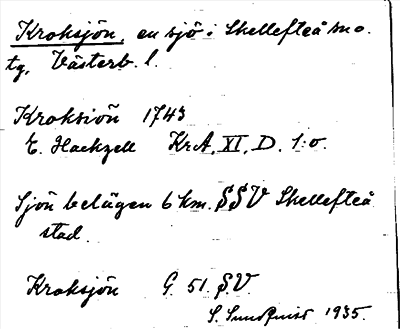 Kroksjön, en sjö i Skellefteå sno.
tg, Västerb. l.
Kroksiöñ 1743
E. Hackzell KrA, XI, D. 1:o.
Sjön belägen 6 km. SSV Skellefteå
stad.
Kroksjön G. 51. S.V.
S. Sundquist 1935.